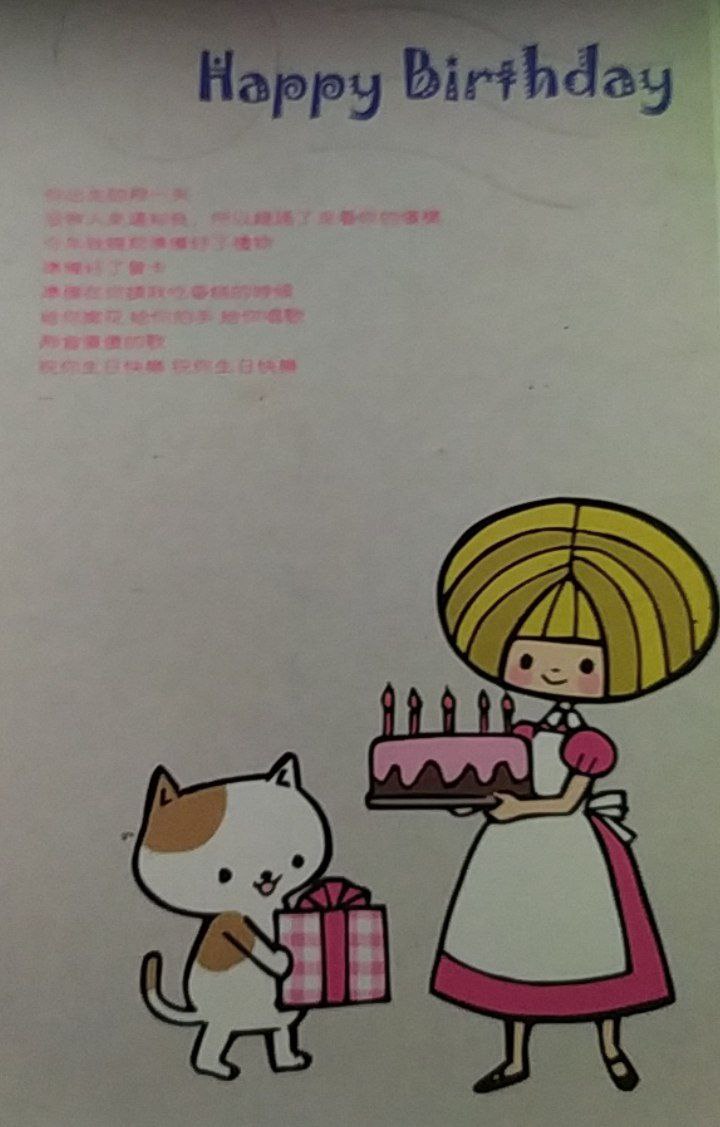 Happy Birthday
你出生的那一天
沒有人來通知我，所以錯過了來看你的機會
今年我提前準備好了禮物
準備好了賀卡
準備在你請我吃蛋糕的時候
給你獻花 給你拍手 給你唱歌
祝你生日快樂 祝你生日快樂